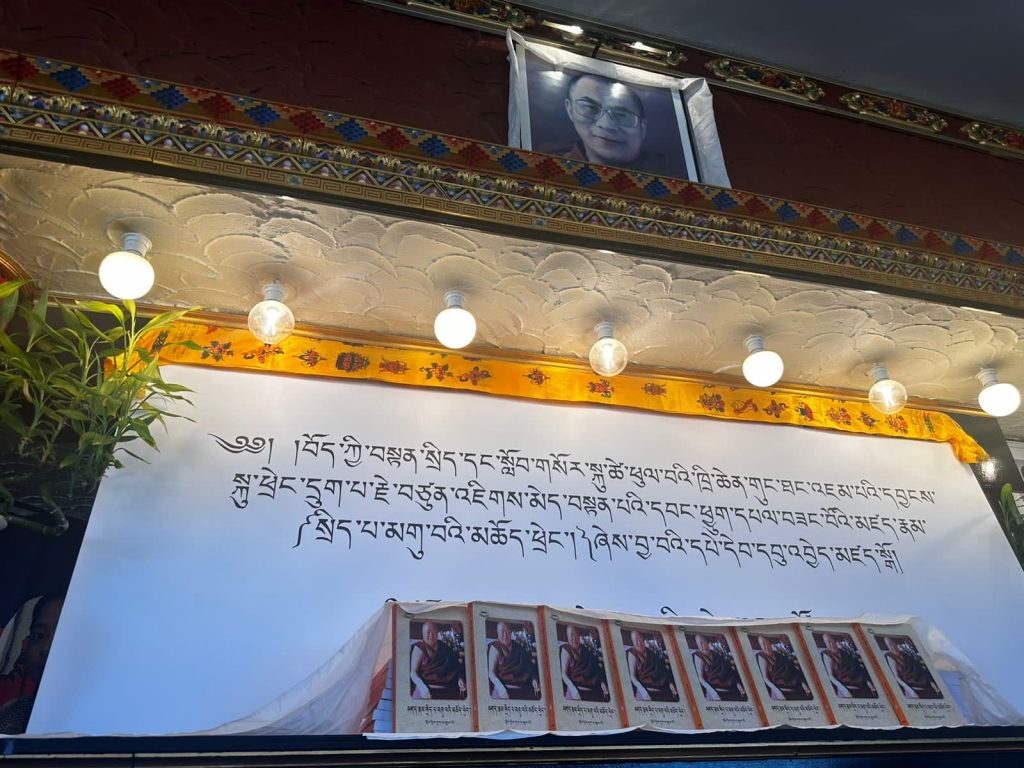 ༄༅། །བོད་ཀྱི་བསྟན་སྲིད་དང་སློབ་གསོར་སྐུ་ཚེ་ཕུལ་བའི་ཁྲི་ཆེན་གུང་ཐང་འཇམ་པའི་དབྱངས་
སྐུ་ཕྲེང་དྲུག་པ་རྗེ་བཙུན་འཇིགས་མེད་བསྟན་པའི་དབང་ཕྱུག་དཔལ་བཟང་པོའི་མཛད་རྣམ་
༼སྲིད་པ་མགུ་བའི་མཆོད་ཕྲེང་།༽ཞེས་བྱ་བའི་དཔེ་དེབ་དབུ་འབྱེད་མཛད་སྒོ།